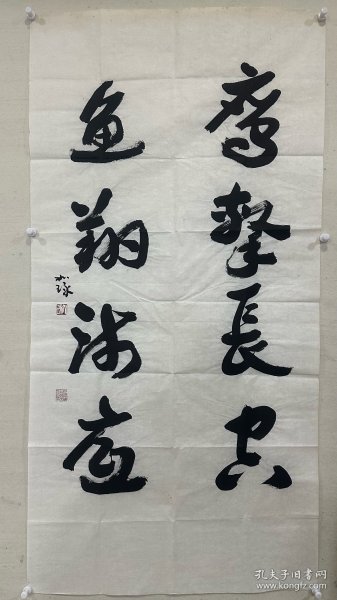 鹰擊長空
鱼翔浅底
孔夫子旧书网
www.kongfz.com